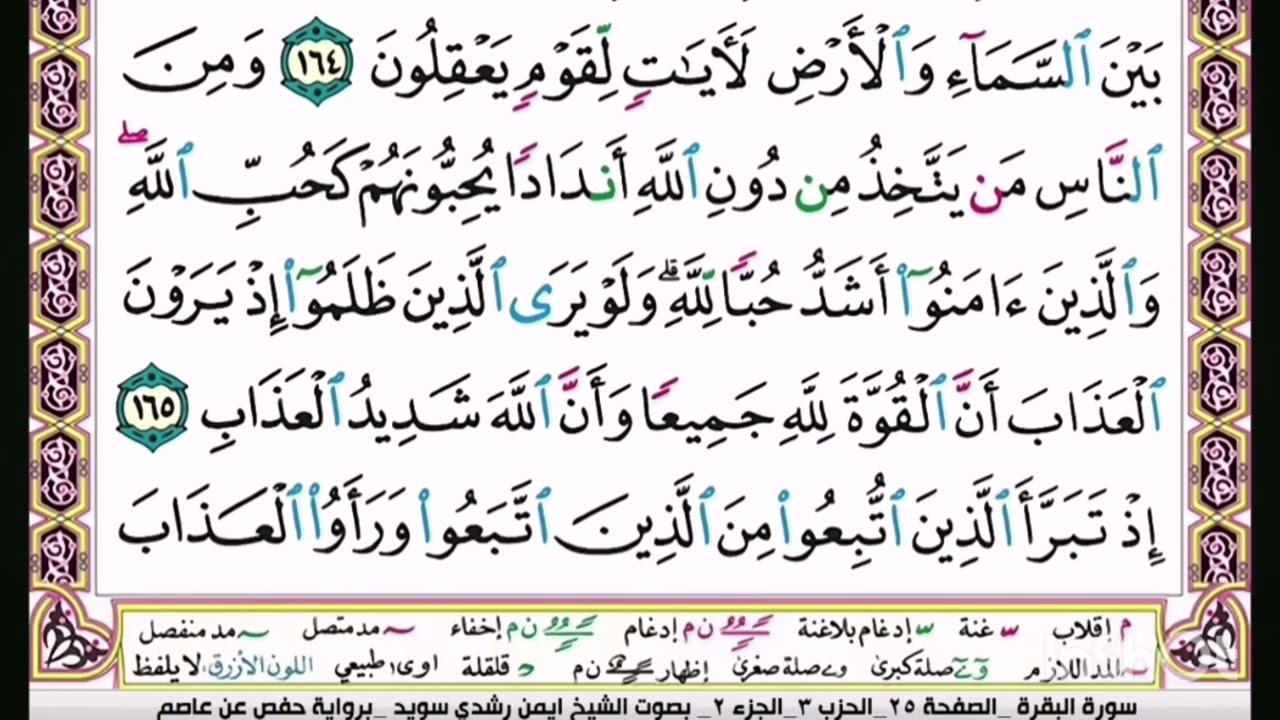 بَيْنَ ٱلسَّمَآءِ وَٱلْأَرْضِ لَأَيَـٰتٍ لِّقَوْمٍ يَعْقِلُونَ ١٦٤ وَمِنَ
ٱلنَّاسِ مَن يَتَّخِذُ مِن دُونِ ٱللَّهِ أَندَادًا يُحِبُّونَهُمْ كَحُبِّ ٱللَّهِ ۖ
وَٱلَّذِينَ ءَامَنُوٓا۟ أَشَدُّ حُبًّا لِّلَّهِ ۗ وَلَوْ يَرَى ٱلَّذِينَ ظَلَمُوٓا۟ إِذْ يَرَوْنَ
ٱلْعَذَابَ أَنَّ ٱلْقُوَّةَ لِلَّهِ جَمِيعًا وَأَنَّ ٱللَّهَ شَدِيدُ ٱلْعَذَابِ ١٦٥
إِذْ تَبَرَّأَ ٱلَّذِينَ ٱتُّبِعُوا۟ مِنَ ٱلَّذِينَ ٱتَّبَعُوا۟ وَرَأَوُا۟ ٱلْعَذَابَ
م إقلاب غنة إدغام بلاغنة ن م إدغام ن م إخفاء مد متصل مد منفصل
المد اللازم صلة كبرى صلة صغرى إظهار ن م قلقلة اوى طبيعي اللون الأزرق لا يلفظ
سورة البقرة _الصفحة ٢٥_الحزب ٣_الجزء ٢_ بصوت الشيخ ايمن رشدي سويد _برواية حفص عن عاصم